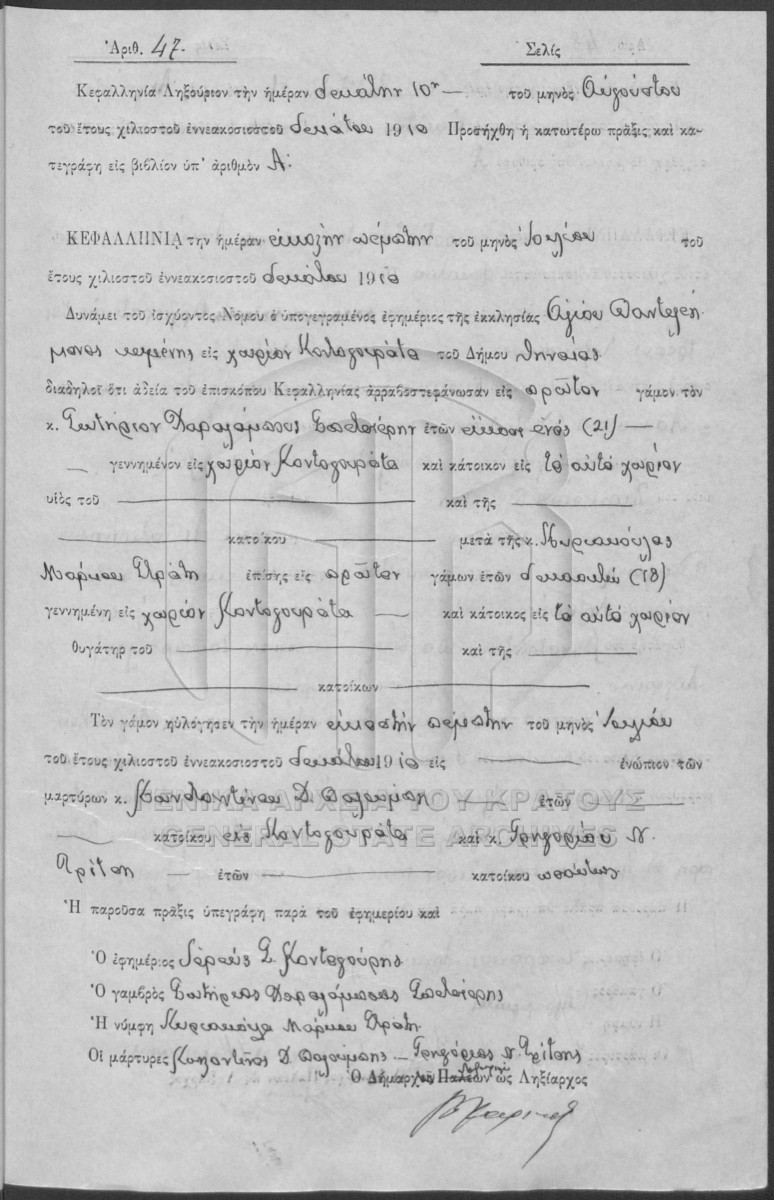 Ἀριθ. 47. Σελὶς
Κεφαλληνία Ληξούριον τὴν ἡμέραν δεκάτην 10ην — τοῦ μηνὸς Αὐγούστου
τοῦ ἔτους χιλιοστοῦ ἐννεακοσιοστοῦ δεκάτου 1910 Προσήχθη ἡ κατωτέρω πρᾶξις καὶ κα-
τεγράφη εἰς βιβλίον ὑπ' ἀριθμὸν Α΄.
ΚΕΦΑΛΛΗΝΙΑ τὴν ἡμέραν εἰκοστὴν πέμπτην τοῦ μηνὸς Ἰουλίου τοῦ
ἔτους χιλιοστοῦ ἐννεακοσιοστοῦ δεκάτου 1910
Δυνάμει τοῦ ἰσχύοντος Νόμου ὁ ὑπογεγραμένος ἐφημέριος τῆς ἐκκλησίας Ἁγίου Παντελεή
μονος κειμένης εἰς χωρίον Κονταγουράτα τοῦ Δήμου
διαδηλοῖ ὅτι ἀδείᾳ τοῦ ἐπισκόπου Κεφαλληνίας ἀρραβοστεφάνωσαν εἰς πρῶτον γάμον τὸν
κ. Σωτήριον Χαραλάμπους ἐτῶν εἴκοσι ἑνός (21) —
— γεννημένον εἰς χωρίον Κονταγουράτα καὶ κάτοικον εἰς τὸ αὐτὸ χωρίον
υἱὸς τοῦ — καὶ τῆς —
— κατοίκου — μετὰ τῆς κ. Κυριακούλας
Μάρκου Πρᾶτη ἐπίσης εἰς πρῶτον γάμων ἐτῶν δεκαοκτώ (18)
γεννημένη εἰς χωρίον Κονταγουράτα — καὶ κάτοικος εἰς τὸ αὐτὸ χωρίον
θυγάτηρ τοῦ — καὶ τῆς —
— κατοίκων —
Τὸν γάμον ηὐλόγησεν τὴν ἡμέραν εἰκοστὴν πέμπτην τοῦ μηνὸς Ἰουλίου
τοῦ ἔτους χιλιοστοῦ ἐννεακοσιοστοῦ δεκάτου 1910 εἰς — ἐνώπιον τῶν
μαρτύρων κ. Κωνσταντίνου Δ — ἐτῶν —
— κατοίκου εἰς Κονταγουράτα καὶ κ. Γρηγορίου Ν.
— ἐτῶν — κατοίκου ὡσαύτως
Ἡ παροῦσα πρᾶξις ὑπεγράφη παρὰ τοῦ ἐφημερίου καὶ
Ὁ ἐφημέριος Ἱερεύς Σ. Κονταγούρης
Ὁ γαμβρὸς Σωτήριος Χαραλάμπους
Ἡ νύμφη Κυριακούλα Μάρκου Πρᾶτη
Οἱ μάρτυρες Κωνσταντῖνος Δ. — Γρηγόριος Ν.
Ὁ Δήμαρχος Παλέων ὡς Ληξίαρχος
ΓΕΝΙΚΑ ΑΡΧΕΙΑ ΤΟΥ ΚΡΑΤΟΥΣ
GENERAL STATE ARCHIVES